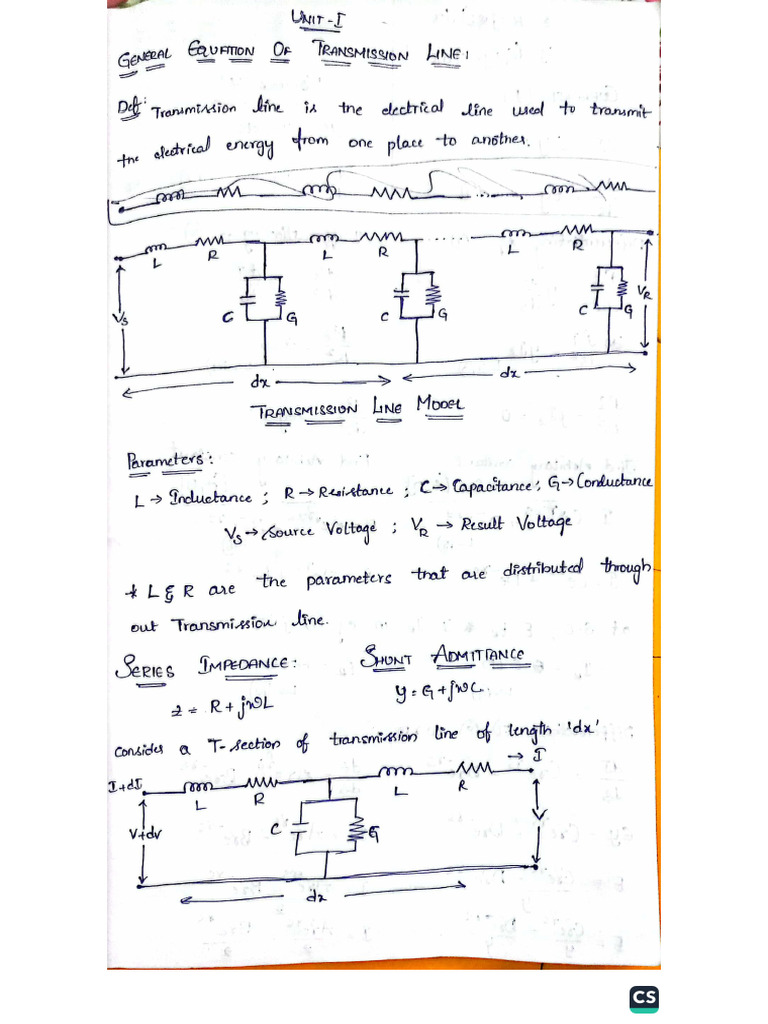 UNIT-I
GENERAL EQUATION OF TRANSMISSION LINE:
Def: Transmission line is the electrical line used to transmit
the electrical energy from one place to another.
L R L R ...... L R
Vs C G C G C G VR
dx dx
TRANSMISSION LINE MODEL
Parameters:
L → Inductance ; R → Resistance ; C → Capacitance ; G → Conductance
Vs → Source Voltage ; VR → Result Voltage
* L & R are the parameters that are distributed through
out Transmission line.
SERIES IMPEDANCE: SHUNT ADMITTANCE
z = R + jωL y = G + jωC.
Consider a T-section of transmission line of length 'dx'
I+dI L R L R → I
V+dv C G V
dx
CS